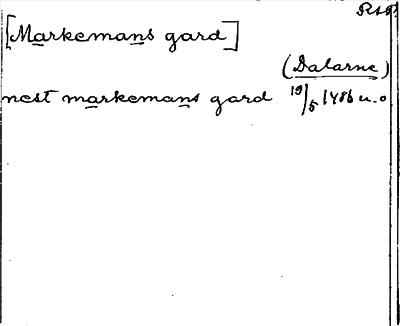 [Markemans gard]
(Dalarne)
nest markemans gard 19/5 1486 u.o.